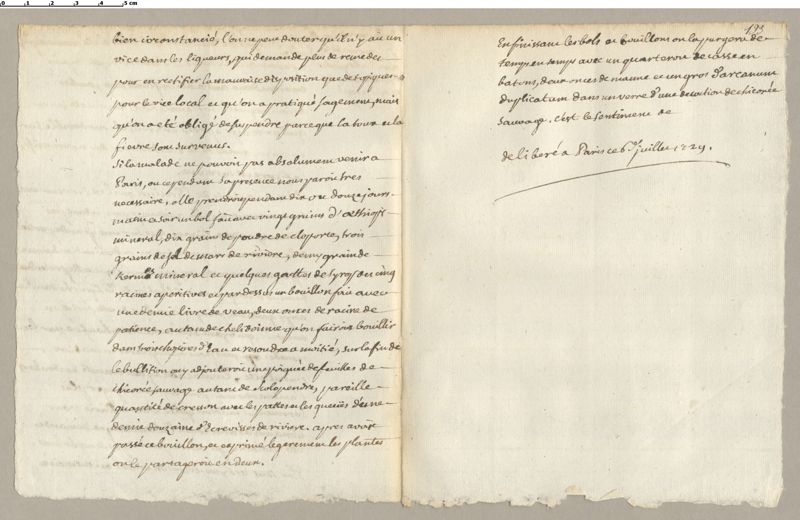 0 1 2 3 4 5 cm
bien circonstancié, l'on ne peut douter qu'il n'y ait un
vice dans les liqueurs, qui demande plus de remedes
pour en rectifier la mauvaise disposition que de topiques
pour le vice local et qu'on a pratiqué sagement, mais
qu'on a eté obligé de suspendre parce que la toux et la
fievre sont survenus.
Si la malade ne pouvoit pas absolument venir a
Paris, ou cependant sa presence nous paroit tres
necessaire, elle prendroit pendant dix ou douze jours
matin et soir un bol fait avec vingt grains d'æthiops
mineral, dix grains de poudre de cloporte, trois
grains de sel de mars de riviere, demy grain de
Kermes mineral et quelques gouttes de syrop des cinq
racines aperitives et par dessus un bouillon fait avec
une demie livre de veau, deux onces de racine de
patience, autant de chelidoine qu'on fairoit bouillir
dans trois d'Eau et resoudre a moitié, sur la fin de
l'ebullition on y adjouteroit une poignée de feuilles de
chicorée sauvage autant de scolopendre, pareille
quantité de cresson avec les pattes et les queües d'une
demie douzaine d'Ecrevisses de riviere. apres avoir
passé ce bouillon, et exprimé legerement les plantes
on le partageroit en deux.
193
En finissant les bols et bouillons on la purgera de
temps en temps avec un quarteron de casse en
batons, deux onces de manne et un gros d'arcanum
duplicatum dans un verre d'une decoction de chicorée
sauvage. c'est le sentiment de
deliberé a Paris ce 6e juillet 1729.